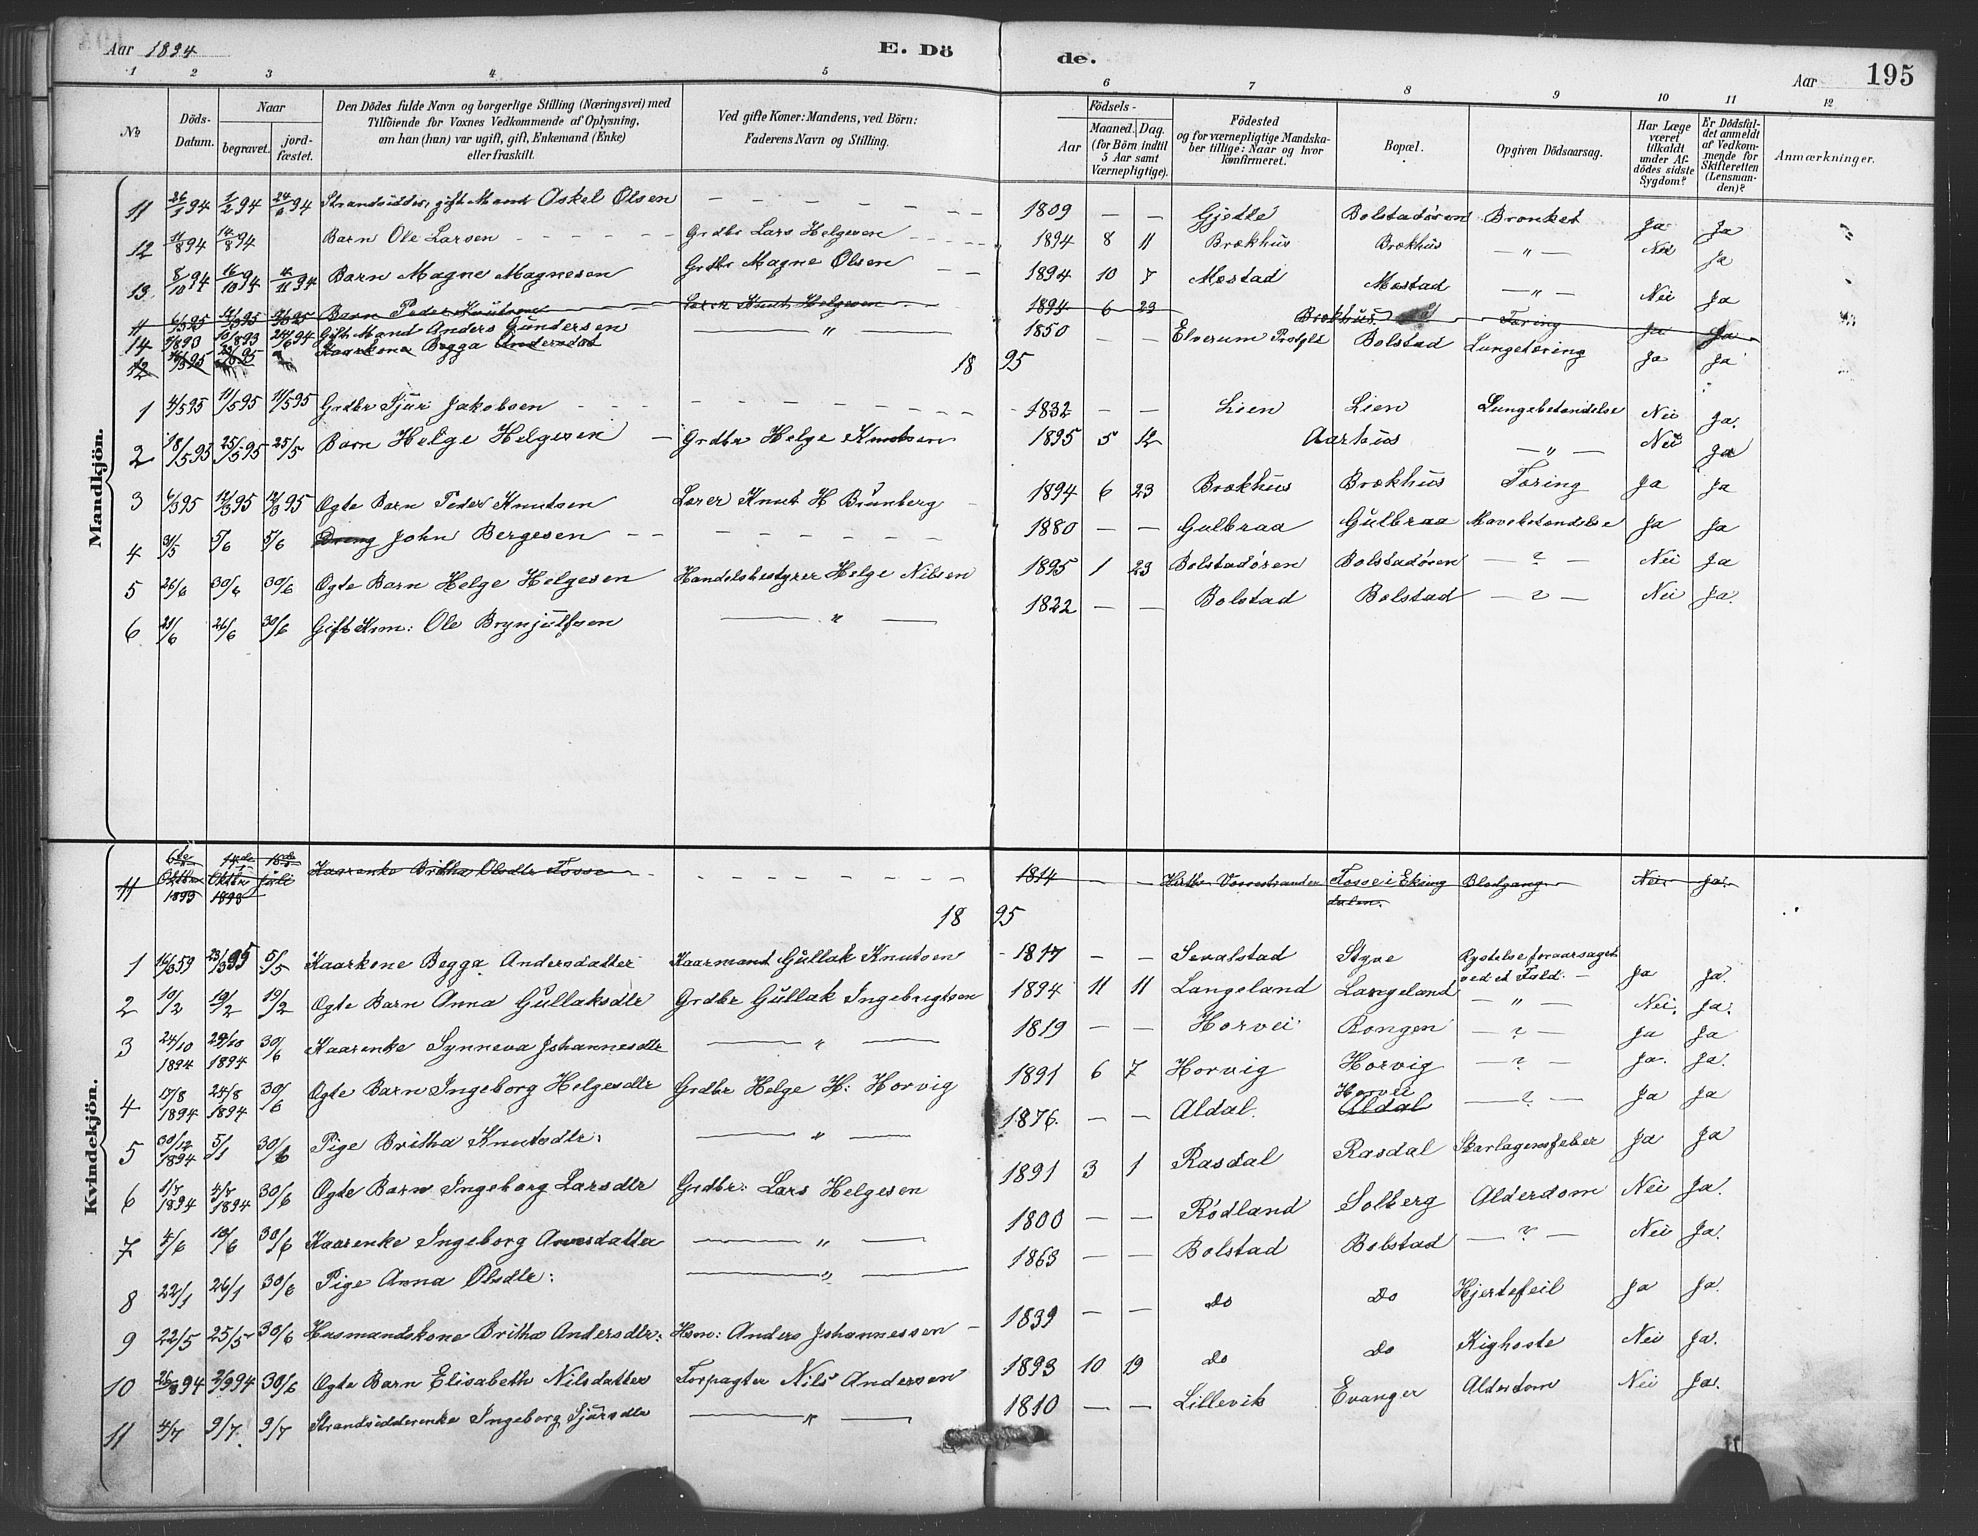 Aar 1894
E. Dö
de.
Aar
195
1 2 3 4 5 6 7 8 9 10 11 12
No
Döds-Datum.
Naar
begravet.
jord-fæstet.
Den Dödes fulde Navn og borgerlige Stilling (Næringsvei) med
Tilföiende for Voxnes Vedkommende af Oplysning,
om han (hun) var ugift, gift, Enkemand (Enke)
eller fraskilt.
Ved gifte Koner: Mandens, ved Börn:
Faderens Navn og Stilling.
Födsels-
Aar
Maaned.
Dag.
(for Börn indtil
5 Aar samt
Værnepligtige).
Födested
og for værnepligtige Mandska-
ber tillige: Naar og hvor
konfirmeret.
Bopæl.
Opgiven Dödsaarsag.
Har Læge
været
tilkaldt
under Af-
dödes sidste
Sygdom?
Er Dödsfal-
det anmeldt
af Vedkom-
mende for
Skifteretten
(Lensman-
den)?
Anmærkninger.
Mandkjön.
11 26/1 94 1/2 94 24/6 94 Strandsidder, gift Mand Askel Olsen 1809 — — Gjette Bolstadøren Bronket Ja Ja
12 11/8 94 14/8 94 Barn Ole Larsen Grdbr Lars Helgesen 1894 8 11 Brækhus Brækhus — " — Nei Ja
13 8/10 94 16/10 94 4/11 94 Barn Magne Magnesen Grdbr Magne Olsen 1894 10 7 Mæstad Mæstad — " — Nei Ja
11 6/3 95 12/3 95 12/3 95 Barn Peder Knutsen Lærer Knut Helgesen 1894 6 23 Brækhus Tæring Ja Ja
14 Gift Mand Anders Gundersen — " — 1850 — — Elverum Bolstad Lungetæring Ja Ja
12 Kaarkone Begga Andersdat
18 95
1 4/5 95 11/5 95 11/5 95 Grdbr Sjur Jakobsen 1832 — — Lien Lien Lungebetændelse Nei Ja.
2 18/5 95 25/5 95 25/5 Barn Helge Helgesen Grdbr Helge Knutsen 1895 5 12 Aarhus — " — Nei Ja
3 6/3 95 12/3 95 12/3 95 Ægte Barn Peder Knutsen Lærer Knut H Brunberg 1894 6 23 Brækhus Brækhus Tæring Ja Ja
4 31/5 5/6 5/6 Dreng John Bergesen 1880 — — Gulbraa Gulbraa Mavebetændelse Ja Ja
5 26/6 30/6 30/6 Ægte Barn Helge Helgesen Handelsbestyrer Helge Nilsen 1895 1 23 Bolstadøren Bolstadøren — ? — Nei Ja
6 21/6 26/6 30/6 Gift Krm: Ole Brynjulfsen — " — 1822 — — Bolstad Bolstad — ? — Nei Ja.
Kvindekjön.
11 6te Oktbr 1893 14de Oktbr 1893 18de Juli Kaarenke Britha Olsdtr Fosse 1814 — — Vossestranden Fosse i Eksing dalen. Blodgang Nei Ja.
18 95
1 5/5 Kaarkone Begga Andersdatter Kaarmand Gullak Knutsen 1817 — — Sevalstad Styve Rystelse foraarsaget ved et Fald. Ja Ja.
2 10/2 19/2 19/2 Ægte Barn Anna Gullaksdtr Grdbr Gullak Ingebrigtsen 1894 11 11 Langeland Langeland — " — Nei. Ja.
3 24/10 1894 29/10 1894 30/6 Kaarenke Synneva Johannesdtr — " — 1819 — — Horvei Rongen — ? — Ja Ja
4 17/8 1894 25/8 1894 30/6 Ægte Barn Ingeborg Helgesdtr Grdbr Helge H: Horvig 1891 6 7 Horvig Horvig — ? — Ja. Ja.
5 30/12 1894 5/1 30/6 Pige Britha Knutsdtr: — " — 1876. — — Aldal. Horvei Aldal — ? — Ja Ja
6 1/7 1894 4/7 1894 30/6 Ægte Barn Ingeborg Larsdtr Grdbr: Lars Helgesen 1891 3 1 Rasdal Rasdal Skarlagensfeber Ja Ja
7 4/6 10/6 30/6 Kaarenke Ingeborg Arnesdatter — " — 1800 — — Rødland Solberg Alderdom Nei Ja.
8 22/1 26/1 30/6 Pige Anna Olsdtr: — " — 1863 — — Bolstad Bolstad — ? — Nei Ja.
9 22/5 25/5 30/6 Husmandskone Britha Andersdtr: Hsm: Anders Johannessen 1839 — — Do Do Hjertefeil Ja Ja.
10 25/8 94 2/9 94 30/6 Ægte Barn Elisabeth Nilsdatter Forpagter Nils Andersen 1893 10 19 Do Do Kighoste Nei Ja.
11 4/7 9/7. 9/7 Strandsidderenke Ingeborg Sjursdtr — " — 1810 — — Lillevik Evanger Alderdom Nei Ja.